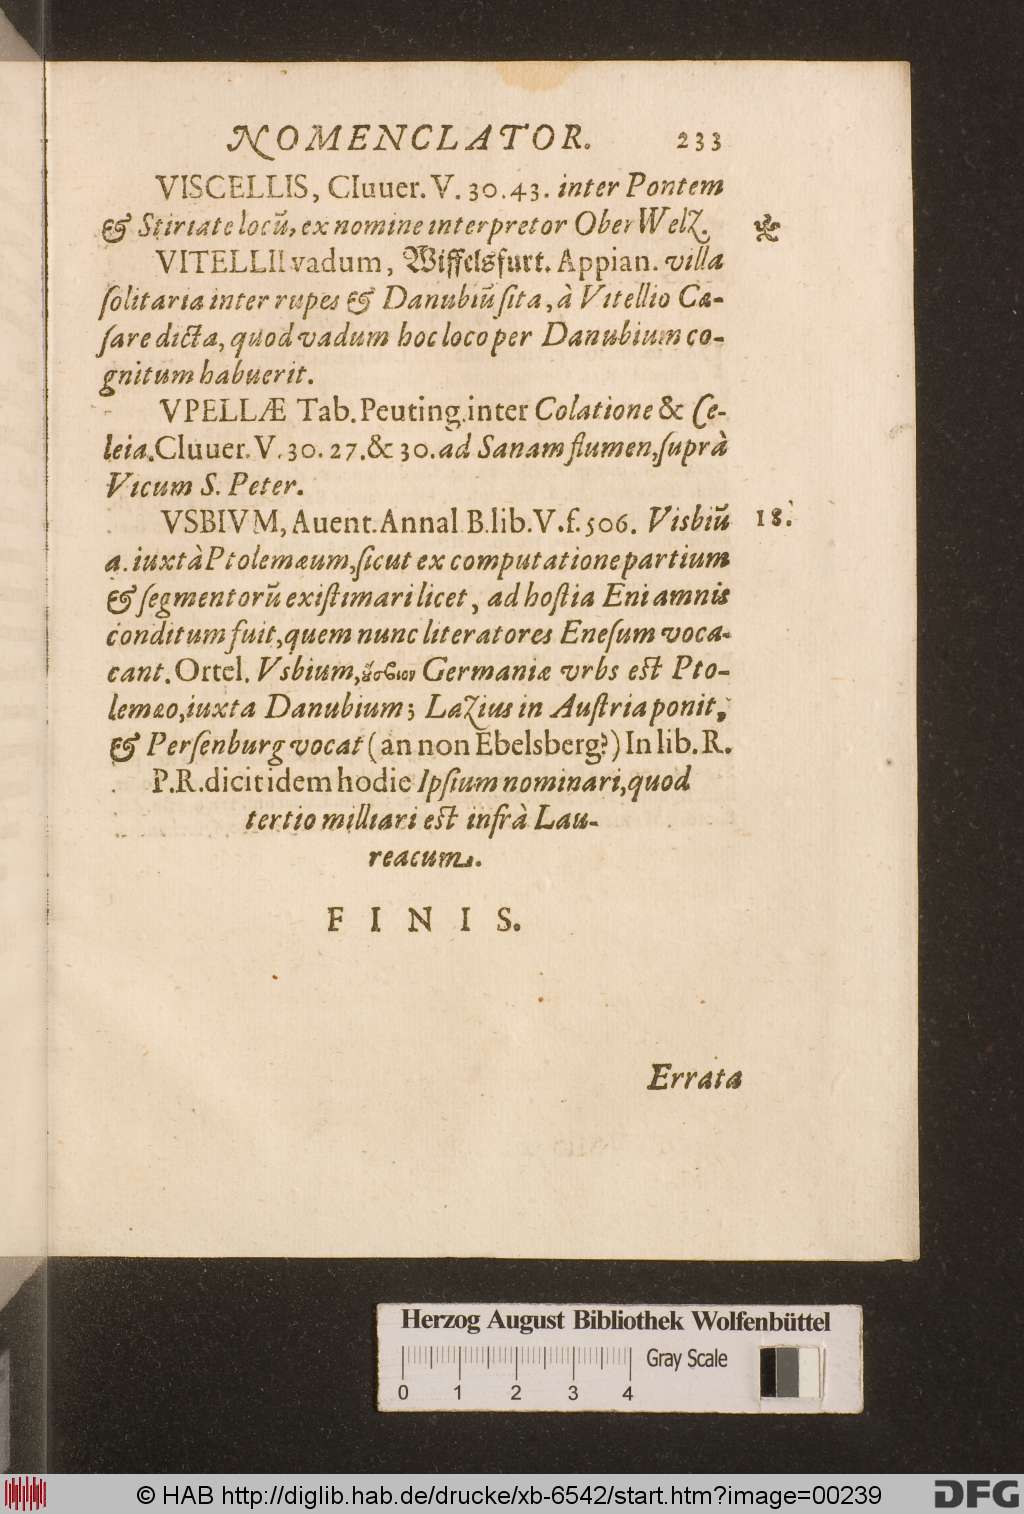 NOMENCLATOR. 233
VISCELLIS, Cluuer. V. 30. 43. inter Pontem
& Stiriate locũ, ex nomine interpretor Ober Welz.
VITELLII vadum, Wiffelsfurt. Appian. villa
ſolitaria inter rupes & Danubiũ ſita, à Vitellio Cæ-
ſare dicta, quod vadum hoc loco per Danubium co-
gnitum habuerit.
VPELLÆ Tab. Peuting. inter Colatione & Ce-
leia. Cluuer. V. 30. 27. & 30. ad Sanam flumen, ſuprà
Vicum S. Peter.
VSBIVM, Auent. Annal B. lib. V. f. 506. Visbiũ 18.
a. iuxtà Ptolemæum, ſicut ex computatione partium
& ſegmentorũ exiſtimari licet, ad hoſtia Eni amnis
conditum fuit, quem nunc literatores Eneſum voca-
cant. Ortel. Vsbium, ἄσβιον Germaniæ vrbs eſt Pto-
lemæo, iuxta Danubium; Lazius in Auſtria ponit,
& Perſenburg vocat (an non Ebelsberg?) In lib. R.
P. R. dicit idem hodie Ipſium nominari, quod
tertio milliari eſt infrà Lau-
reacum.
FINIS.
Errata
Herzog August Bibliothek Wolfenbüttel
Gray Scale
0 1 2 3 4
© HAB http://diglib.hab.de/drucke/xb-6542/start.htm?image=00239
DFG